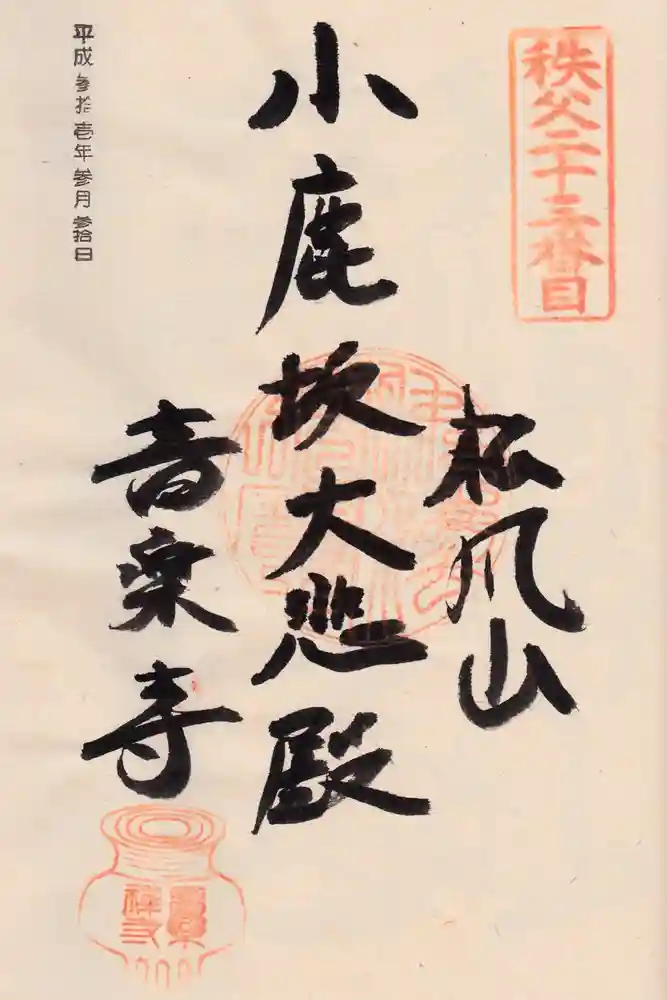 秩父二十三番目
松风山
小鹿坂大悲殿
音楽寺
平成参拾壱年参月参拾日